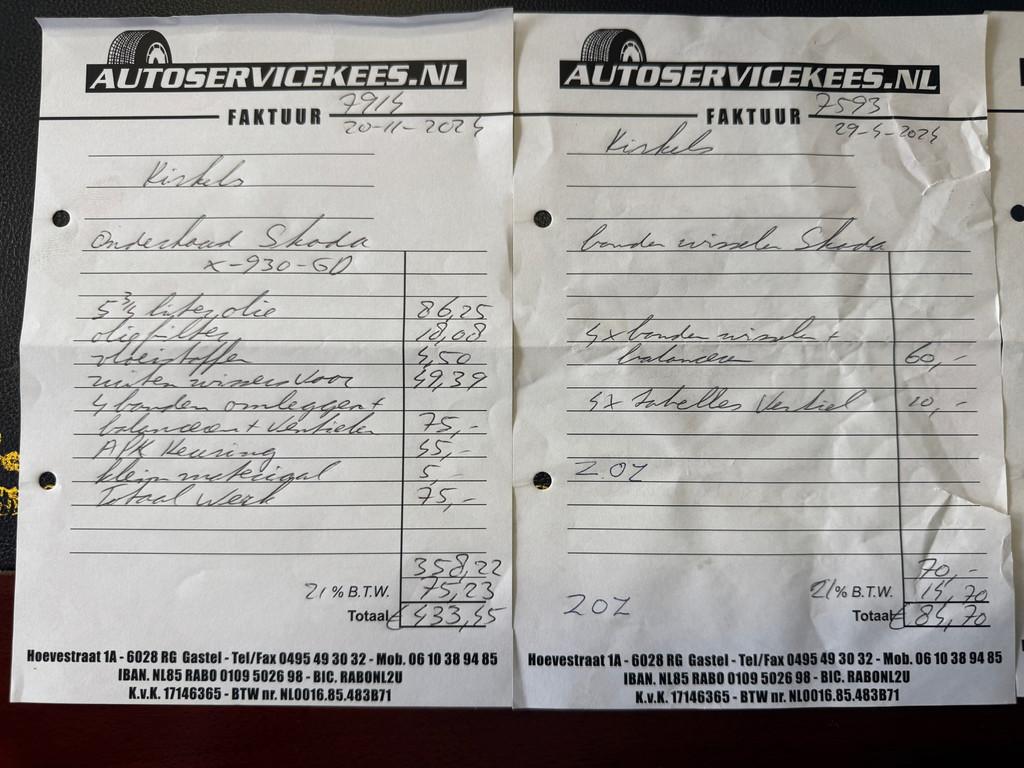 AUTOSERVICEKEES.NL
FAKTUUR 7914
20-11-2024
Kirkels
onderhoud Skoda
X-930-GD
5 3/4 liter olie 86,25
oliefilter 18,08
vloeistoffen 4,50
ruiten wissers voor 49,39
4 banden omleggen +
balanceren + ventielen 75,-
APK Keuring 45,-
klein materiaal 5,-
Totaal werk 75,-
358,22
21% B.T.W. 75,23
Totaal € 433,45
Hoevestraat 1A - 6028 RG Gastel - Tel/Fax 0495 49 30 32 - Mob. 06 10 38 94 85
IBAN. NL85 RABO 0109 5026 98 - BIC. RABONL2U
K.v.K. 17146365 - BTW nr. NL0016.85.483B71
AUTOSERVICEKEES.NL
FAKTUUR 7593
29-4-2024
Kirkels
banden wisselen Skoda
4x banden wisselen +
balanceren 60,-
4x ventiel 10,-
ZOZ
70,-
21% B.T.W. 14,70
ZOZ
Totaal € 84,70
Hoevestraat 1A - 6028 RG Gastel - Tel/Fax 0495 49 30 32 - Mob. 06 10 38 94 85
IBAN. NL85 RABO 0109 5026 98 - BIC. RABONL2U
K.v.K. 17146365 - BTW nr. NL0016.85.483B71